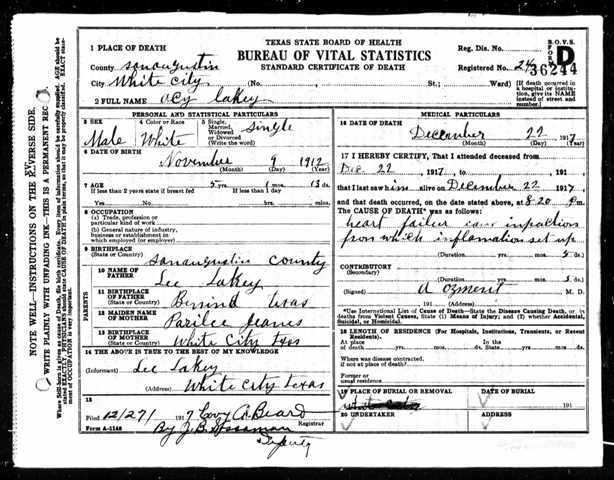 TEXAS STATE BOARD OF HEALTH
BUREAU OF VITAL STATISTICS
STANDARD CERTIFICATE OF DEATH
B.O.V.S.
FORM D
Reg. Dis. No.
Registered No. 24 36244
1 PLACE OF DEATH
County sanaugustin
City White City (No. St.; Ward)
(If death occurred in a hospital or institution, give its NAME instead of street and number.)
2 FULL NAME acy Lakey
PERSONAL AND STATISTICAL PARTICULARS
3 SEX Male
4 Color or Race White
5 Single, Married, Widowed or Divorced (Write the word) Single
6 DATE OF BIRTH
November 9 1912
(Month) (Day) (Year)
7 AGE 5 yrs. 1 mos. 13 ds.
If less than 2 years state if breast fed If less than 1 day
Yes No hrs. mins.
8 OCCUPATION
(a) Trade, profession or particular kind of work
(b) General nature of industry, business or establishment in which employed (or employer)
9 BIRTHPLACE
(State or Country) sanaugustin County
PARENTS
10 NAME OF FATHER Lee Lakey
11 BIRTHPLACE OF FATHER
(State or Country) Texas
12 MAIDEN NAME OF MOTHER Parilee Jeanes
13 BIRTHPLACE OF MOTHER
(State or Country) White City Txs
14 THE ABOVE IS TRUE TO THE BEST OF MY KNOWLEDGE
(Informant) Lee Lakey
(Address) White City Texas
15
Filed 12/27/ 1917 Beard
Registrar
Form A-1148 By J.B.
Deputy
MEDICAL PARTICULARS
16 DATE OF DEATH
December 22 1917
(Month) (Day) (Year)
17 I HEREBY CERTIFY, That I attended deceased from
Dec. 22, 1917, to , 191
that I last saw him alive on December 22 1917,
and that death occurred, on the date stated above, at 8-20 P.m.
The CAUSE OF DEATH* was as follows:
heart failur
from which inflamation set up
(Duration yrs. mos. 5 ds.)
CONTRIBUTORY
(Secondary)
(Duration yrs. mos. 5 ds.)
(Signed) A Ozment M. D.
191 (Address)
*Use International List of Cause of Death—State the Disease Causing Death, or, in deaths from Violent Causes, State (1) Means of Injury; and (2) whether Accidental, Suicidal, or Homicidal.
18 LENGTH OF RESIDENCE (For Hospitals, Institutions, Transients, or Recent Residents).
At place of death yrs. mos. ds. State yrs. mos. ds.
Where was disease contracted, if not at place of death?
Former or usual residence
19 PLACE OF BURIAL OR REMOVAL
White City
DATE OF BURIAL
191
20 UNDERTAKER
ADDRESS
NOTE WELL—INSTRUCTIONS ON THE REVERSE SIDE.
WRITE PLAINLY WITH UNFADING INK—THIS IS A PERMANENT REC